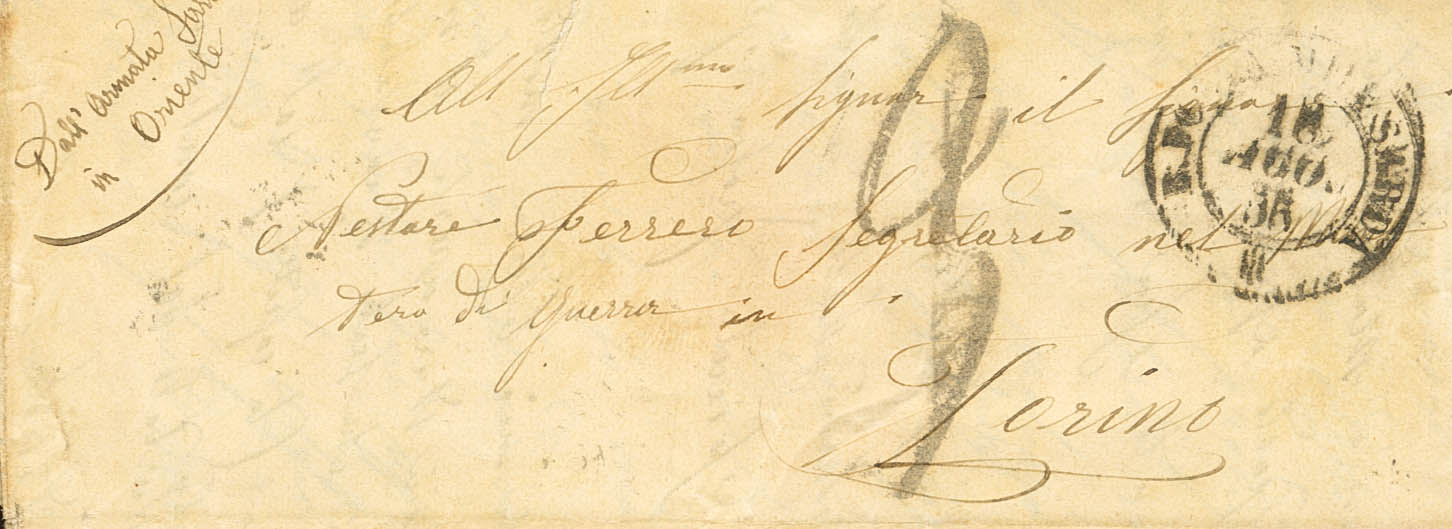 Dall' Armata Sar
in Oriente
All' Ill.mo Signor il Signor
Nestore Ferrero Segretario nel Mini
tero di Guerra in
Torino
18
AGO.
SARDA